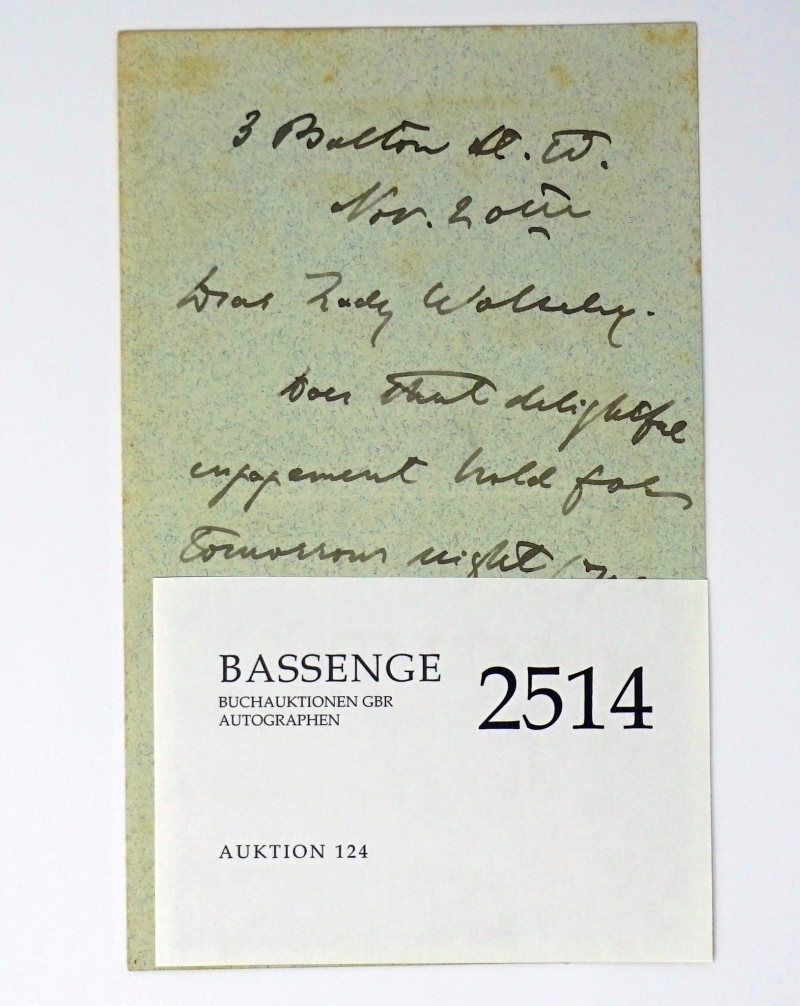 3 Bolton St. W.
Nov. 20th
Dear Lady Wolseley.
Does that delightful
engagement hold for
tomorrow night
BASSENGE
BUCHAUKTIONEN GBR
AUTOGRAPHEN
2514
AUKTION 124